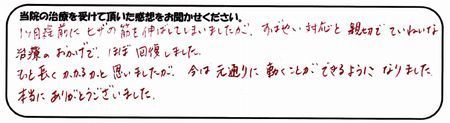 当院の治療を受けて頂いた感想をお聞かせください。
1ヶ月程前にヒザの筋を伸ばしてしまいましたが、すばやい対応と親切でていねいな
治療のおかげで、ほぼ回復しました。
もっと長くかかるかと思いましたが、今は元通りに動くことができるようになりました。
本当にありがとうございました。